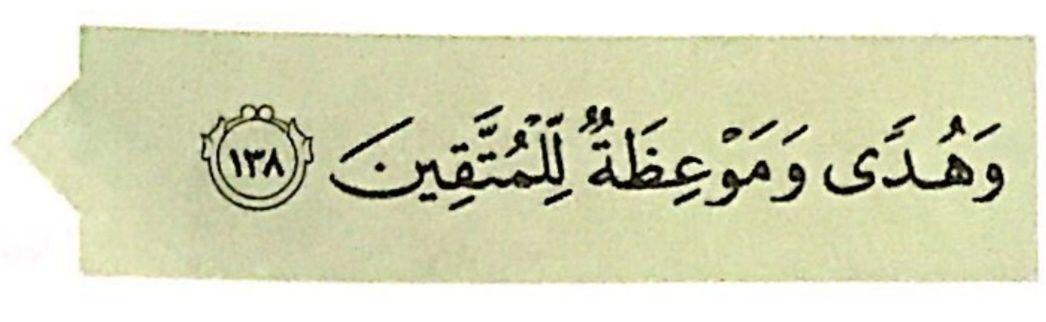 وَهُدًى وَمَوْعِظَةٌ لِّلْمُتَّقِينَ ١٣٨